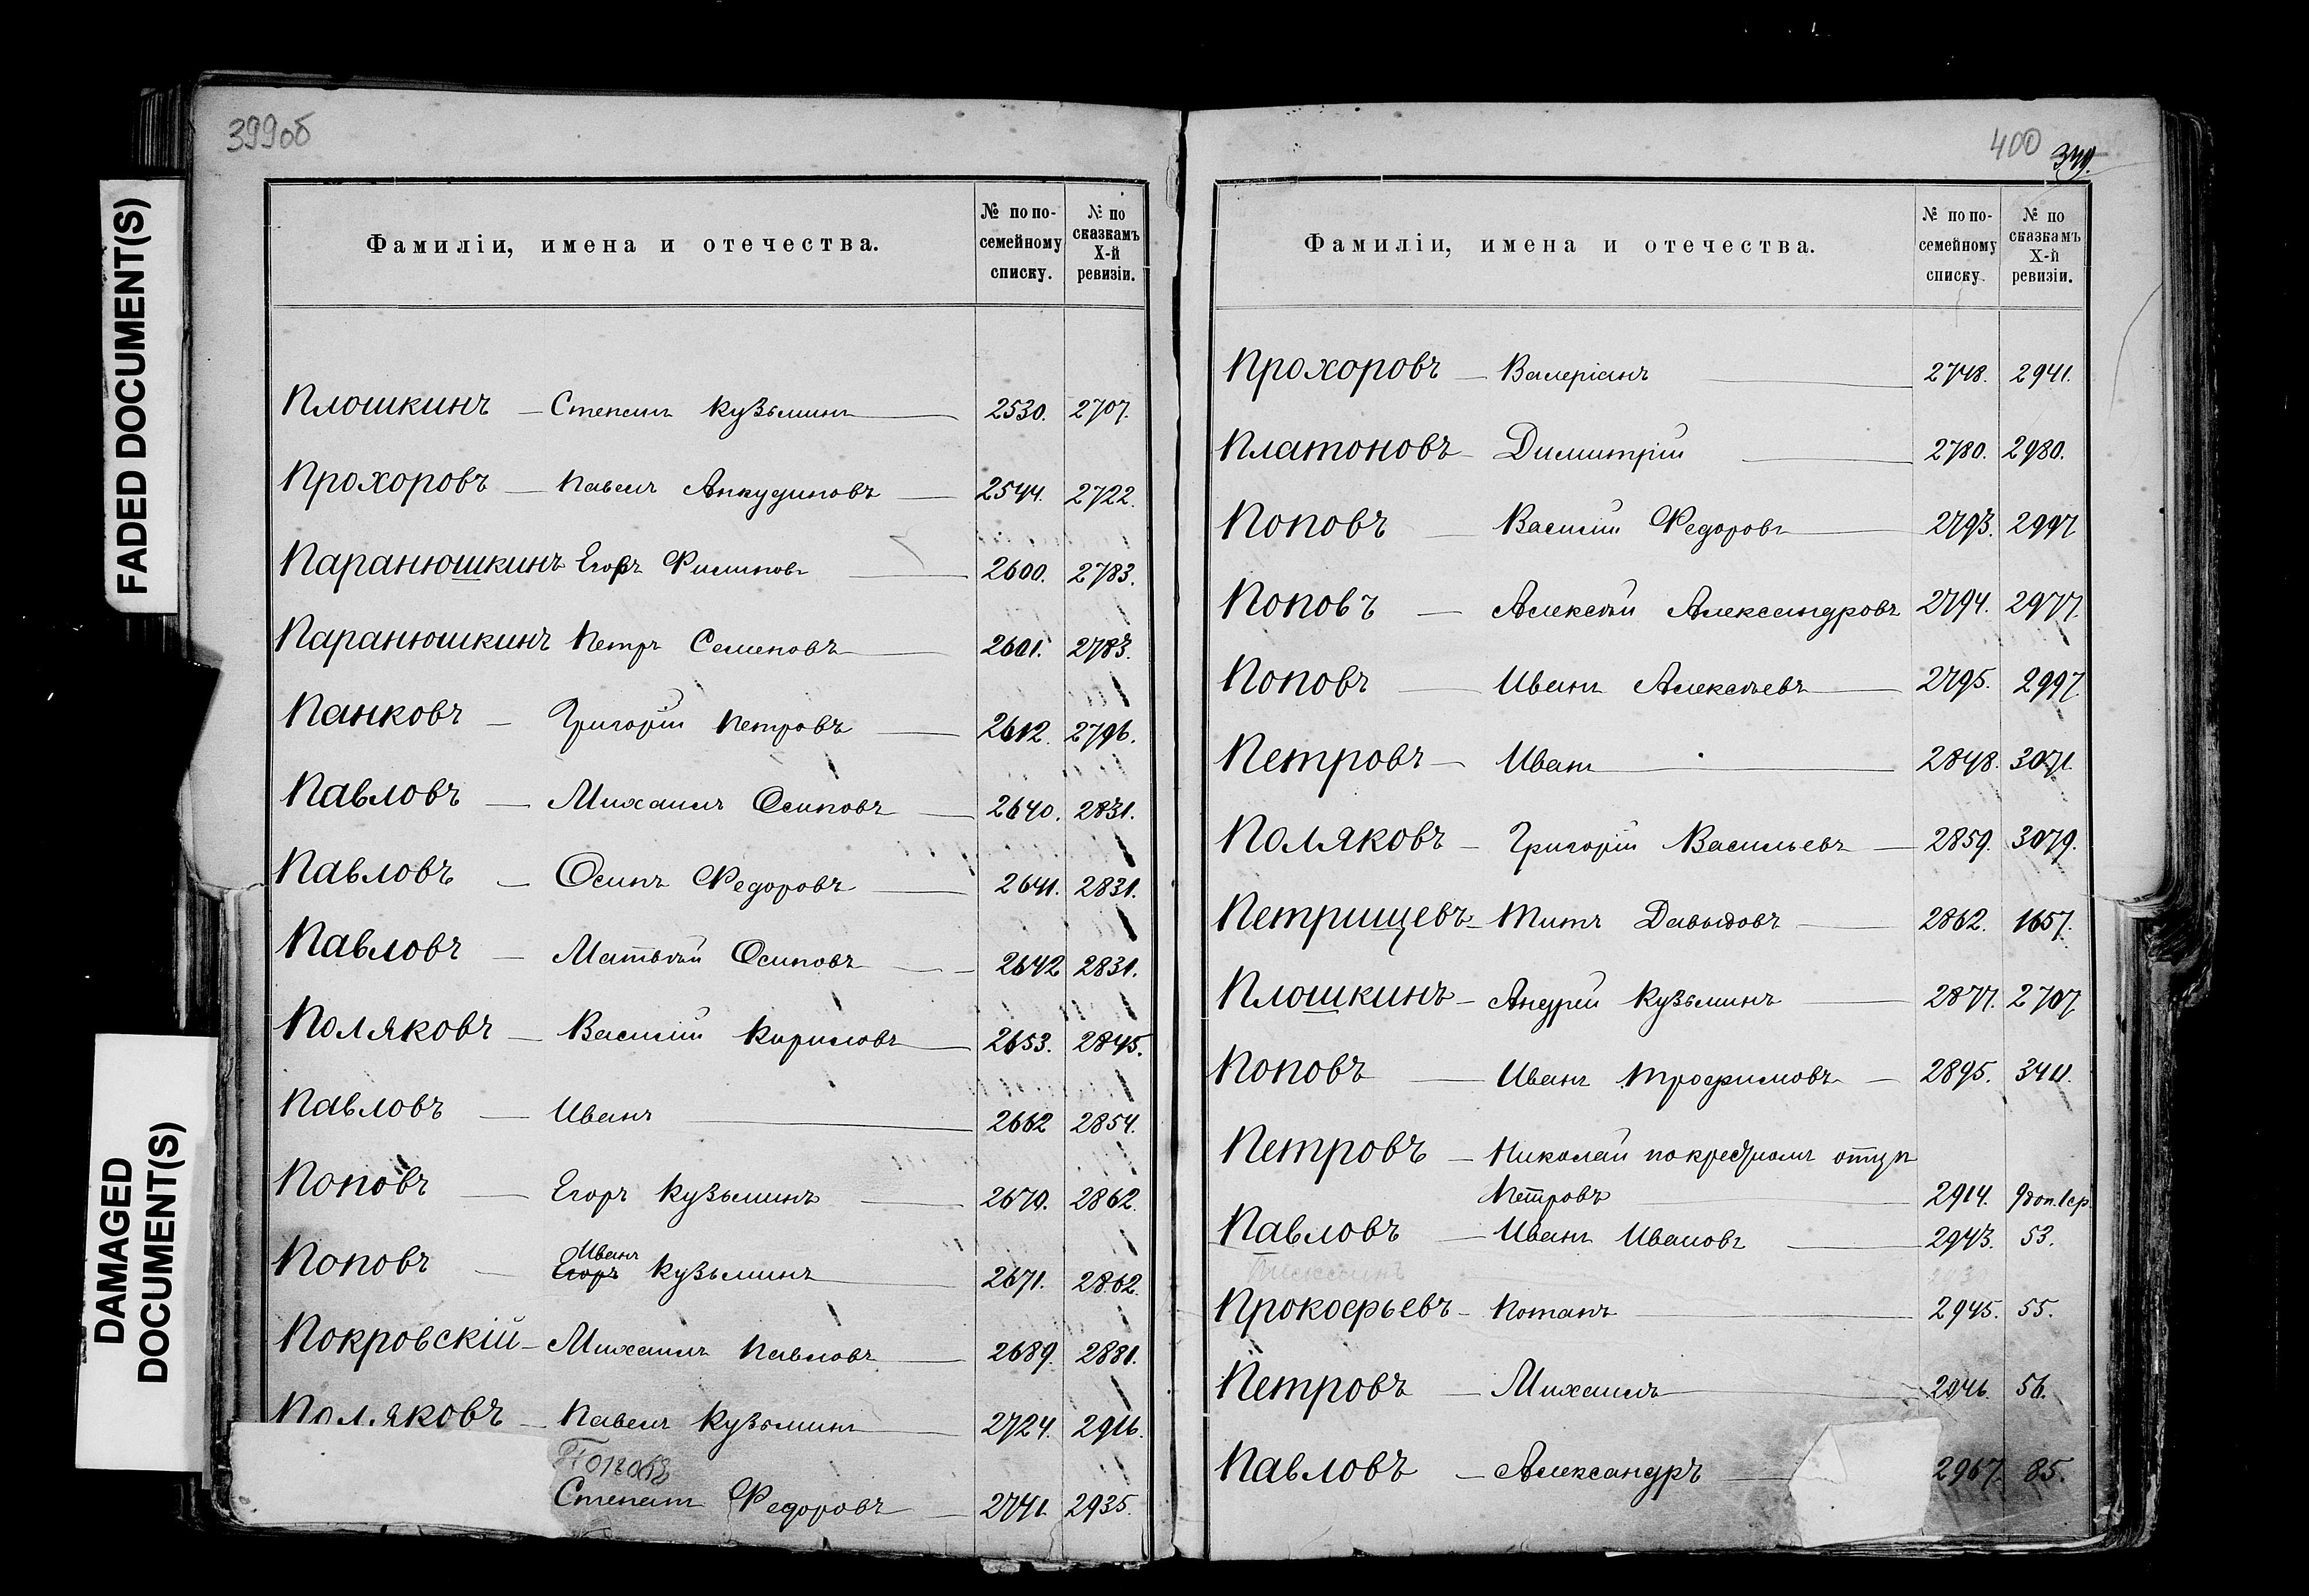 FADED DOCUMENT(S)
DAMAGED
DOCUMENT(S)
399об
Фамиліи, имена и отечества. № по посемейному списку. № по сказкамъ X-й ревизіи.
Плошкинъ — Степанъ Кузьминъ 2530. 2707.
Прохоровъ — Павелъ Анкудиновъ 2544. 2722.
Паранюшкинъ Егоръ Филиповъ 2600. 2783.
Паранюшкинъ Петръ Семеновъ 2601. 2783.
Панковъ — Григорій Петровъ 2612. 2796.
Павловъ — Михаилъ Осиповъ 2640. 2831.
Павловъ — Осипъ Федоровъ 2641. 2831.
Павловъ — Матвѣй Осиповъ 2642 2831.
Поляковъ — Василій Кириловъ 2653. 2845.
Павловъ — Иванъ 2662 2854.
Поповъ — Егоръ Кузьминъ 2670. 2862.
Иванъ
Поповъ — Егоръ Кузьминъ 2671. 2862.
Покровскій — Михаилъ Павловъ 2689. 2881.
Поляковъ — Павелъ Кузьминъ 2724. 2916.
Поповъ
Степанъ Федоровъ — 2741. 2935.
400
Фамиліи, имена и отечества. № по посемейному списку. № по сказкамъ X-й ревизіи.
Прохоровъ — Валеріанъ 2748. 2941.
Платоновъ — Димитрій 2780. 2980.
Поповъ — Василій Федоровъ 2793. 2997
Поповъ — Алексѣй Александровъ 2794. 2977.
Поповъ — Иванъ Алексѣевъ 2795. 2997
Петровъ — Иванъ 2848. 3071.
Поляковъ — Григорій Васильевъ 2859. 3079.
Петрищевъ — Титъ Давыдовъ 2862. 1657.
Плошкинъ — Андрей Кузьминъ 2877. 2707
Поповъ — Иванъ Трофимовъ — 2895. 3411.
Петровъ — Николай по крестному отцу
Петровъ 2914. 9 доп. 1 ср.
Павловъ — Иванъ Ивановъ 2943. 53.
Прокофьевъ — Потапъ 2945. 55.
Петровъ — Михаилъ 2946. 56.
Павловъ — Александръ 2967. 85.